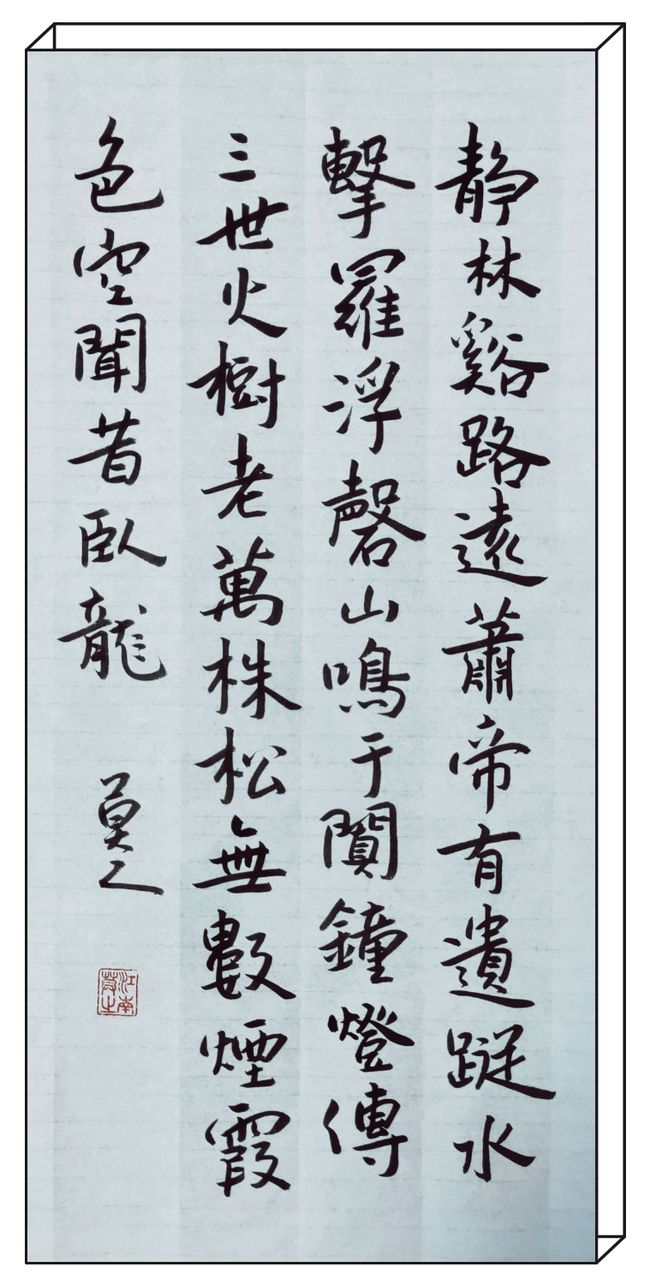 静林谿路遠蕭帝有遺蹤水
擊羅浮磬山鳴于闐鐘燈傳
三世火樹老萬株松無數煙霞
色空聞昔臥龍
江南